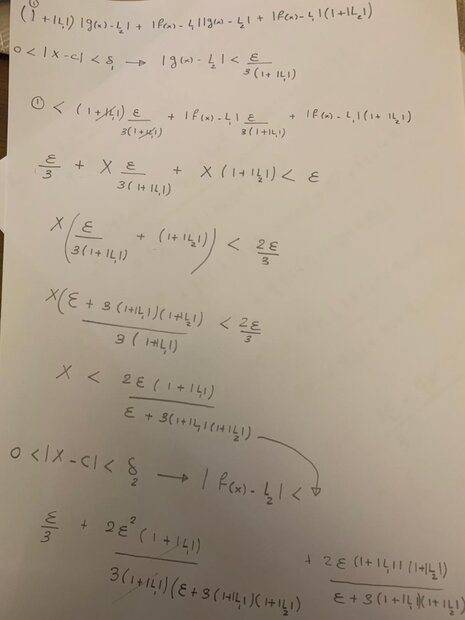 ①
(1+|L₁|)|g(x)-L₂| + |f(x)-L₁||g(x)-L₂| + |f(x)-L₁|(1+|L₂|)
0<|x-c|<δ₁ → |g(x)-L₂| < ε/3(1+|L₁|)
① < (1+|L₁|) ε/3(1+|L₁|) + |f(x)-L₁| ε/3(1+|L₁|) + |f(x)-L₁|(1+|L₂|)
ε/3 + X ε/3(1+|L₁|) + X(1+|L₂|) < ε
X(ε/3(1+|L₁|) + (1+|L₂|)) < 2ε/3
X(ε+3(1+|L₁|)(1+|L₂|)/3(1+|L₁|) < 2ε/3
X < 2ε(1+|L₁|)/ε+3(1+|L₁|(1+|L₂|)
0<|x-c|<δ₂ → |f(x)-L₂| <
ε/3 + 2ε²(1+|L₁|)/3(1+|L₁|)(ε+3(1+|L₁|)(1+|L₂|) + 2ε(1+|L₁|)(1+|L₂|)/ε+3(1+|L₁|)(1+|L₂|)